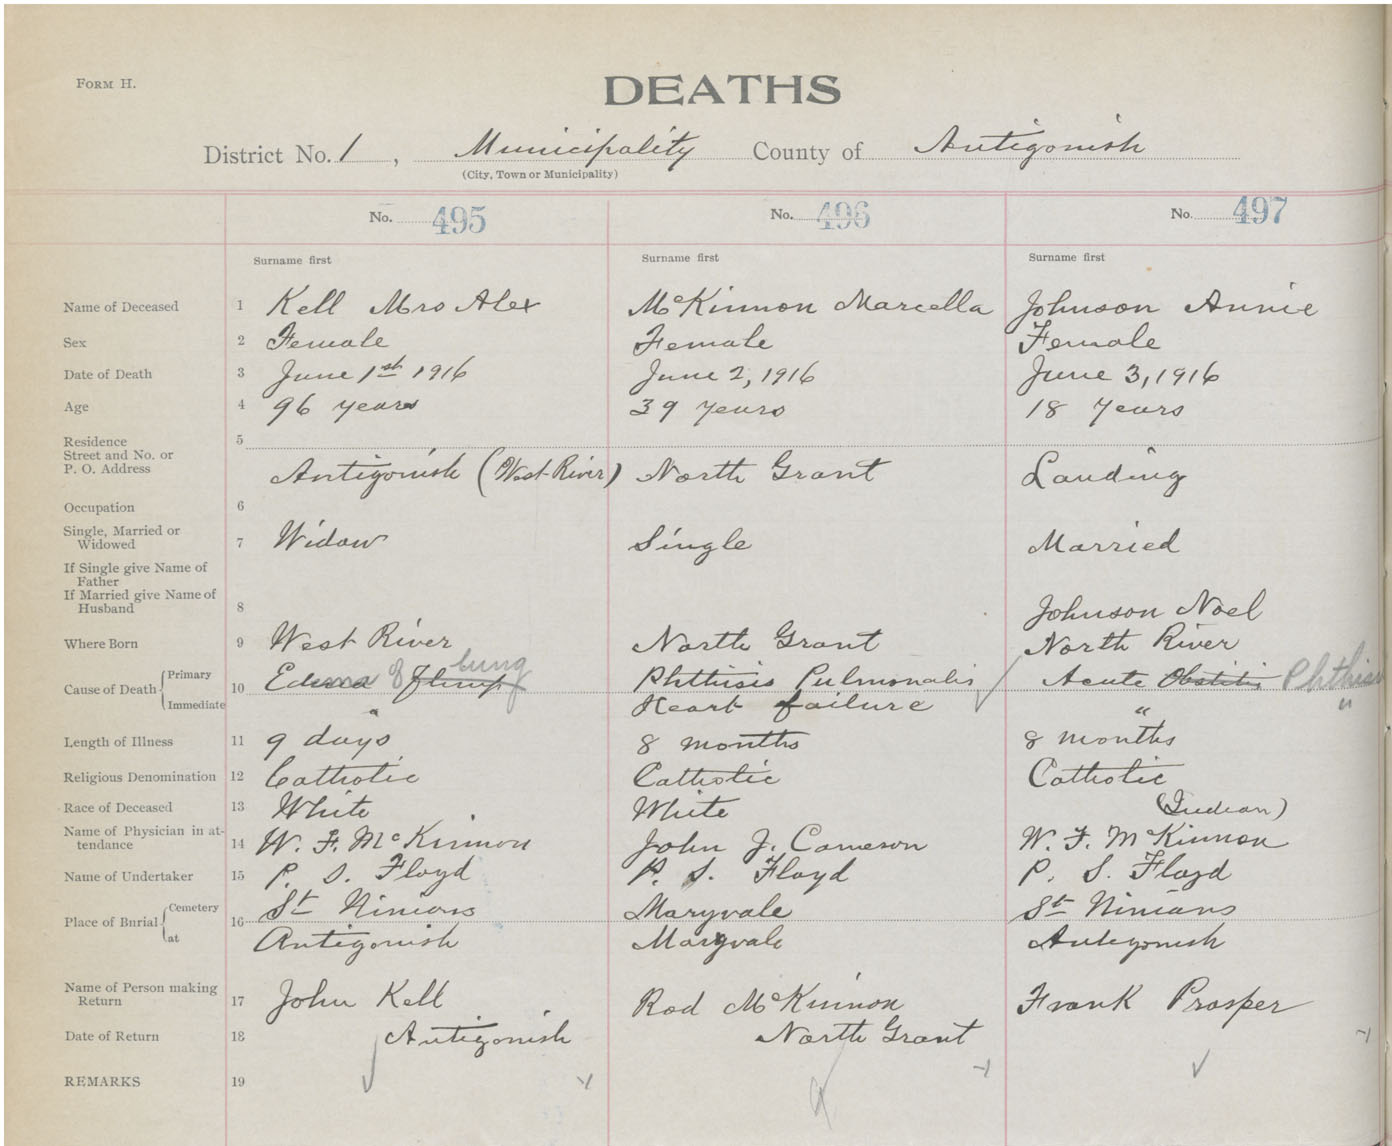 FORM H.
DEATHS
District No. 1, Municipality County of Antigonish
(City, Town or Municipality)
No. 495 No. 496 No. 497
Surname first Surname first Surname first
Name of Deceased 1 Kell Mrs Alex McKinnon Marcella Johnson Annie
Sex 2 Female Female Female
Date of Death 3 June 1st 1916 June 2, 1916 June 3, 1916
Age 4 96 years 39 years 18 years
Residence 5
Street and No. or
P. O. Address Antigonish (West River) North Grant Landing
Occupation 6
Single, Married or
Widowed 7 Widow Single Married
If Single give Name of
Father
If Married give Name of
Husband 8 Johnson Noel
Where Born 9 West River North Grant North River
Cause of Death 10 Primary of lung Phthisis Pulmonalis Acute Phthisis
Immediate " Heart failure " "
Length of Illness 11 9 days 8 months 8 months
Religious Denomination 12 Cathotic Cathotic Cathotic
Race of Deceased 13 White White (Indian)
Name of Physician in at-
tendance 14 W. F. McKinnon John J. Cameson W. F. McKinnon
Name of Undertaker 15 P. S. Floyd P. S. Floyd P. S. Floyd
Place of Burial 16 Cemetery St Ninians Maryvale St Ninians
at Antigonish Maryvale Antigonish
Name of Person making
Return 17 John Kell Rod McKinnon Frank Prosper
Date of Return 18 Antigonish North Grant
REMARKS 19